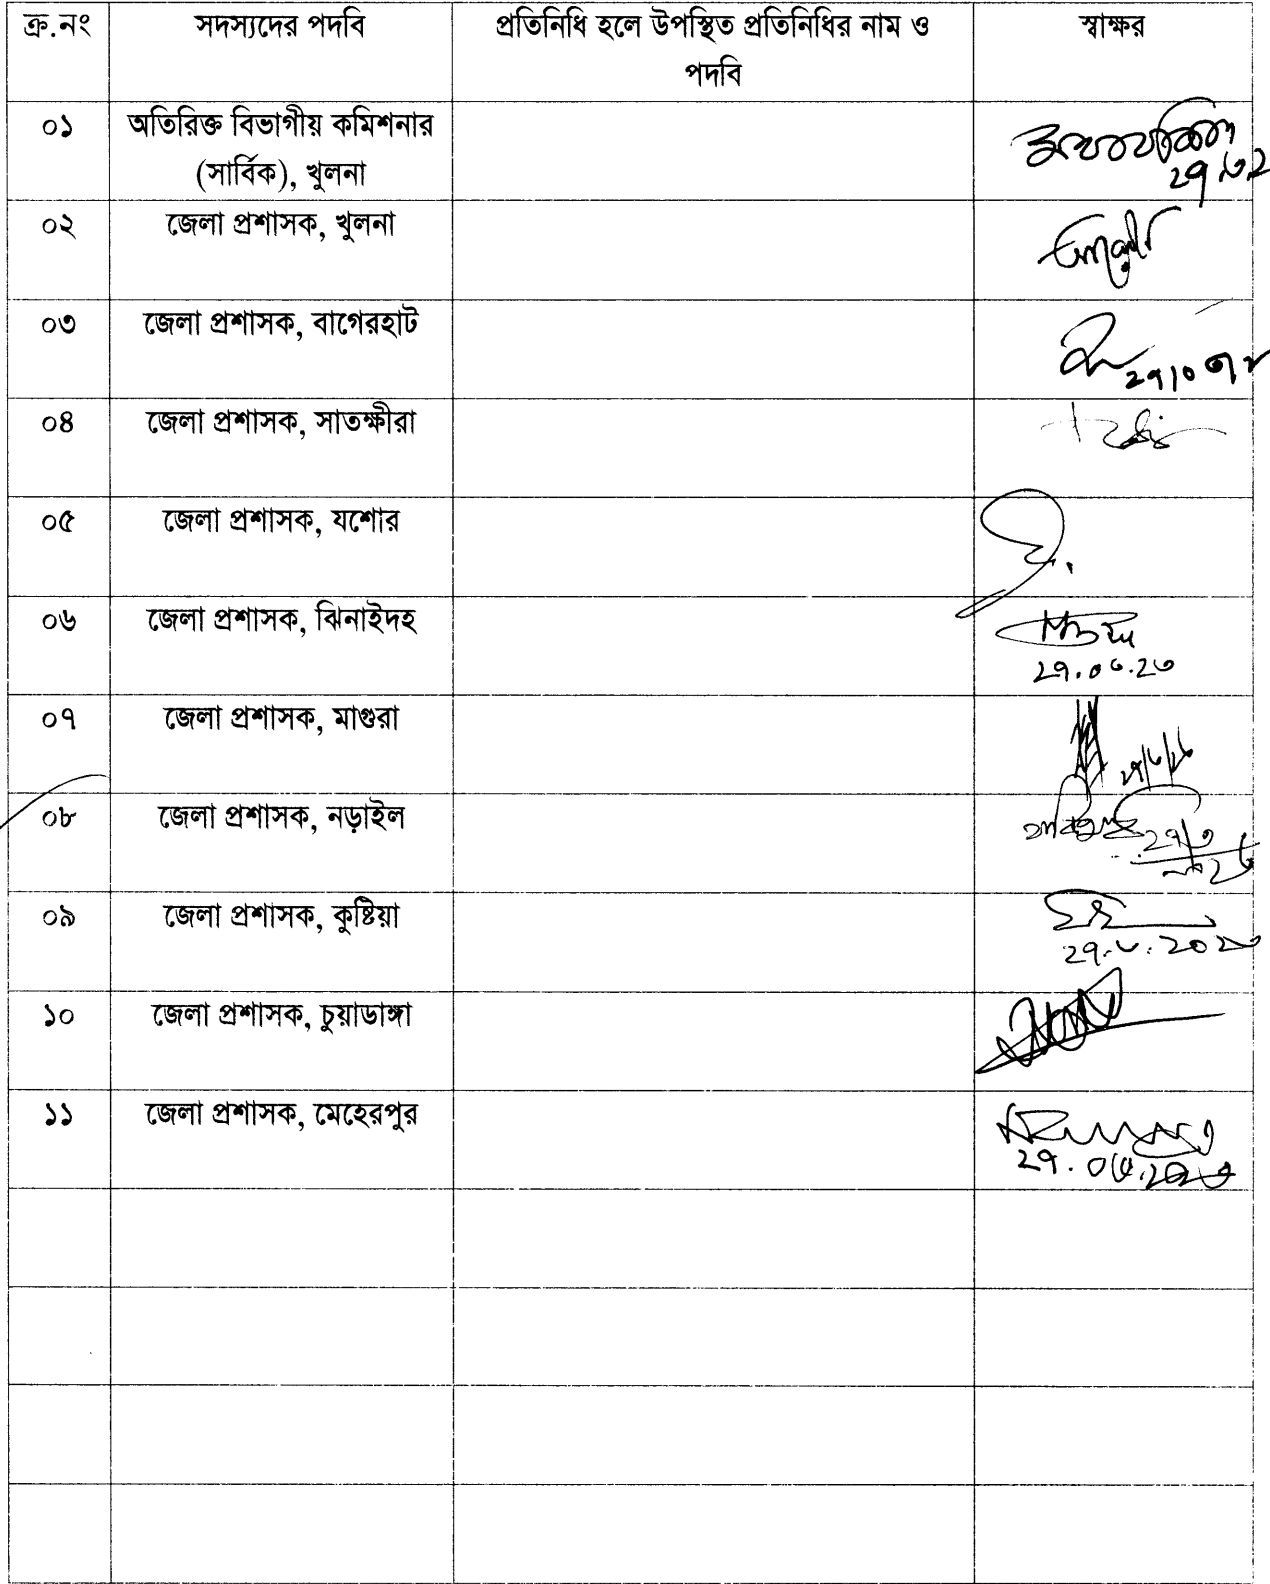 ক্র.নং সদস্যদের পদবি প্রতিনিধি হলে উপস্থিত প্রতিনিধির নাম ও স্বাক্ষর
পদবি
০১ অতিরিক্ত বিভাগীয় কমিশনার
(সার্বিক), খুলনা
০২ জেলা প্রশাসক, খুলনা
০৩ জেলা প্রশাসক, বাগেরহাট
০৪ জেলা প্রশাসক, সাতক্ষীরা
০৫ জেলা প্রশাসক, যশোর
০৬ জেলা প্রশাসক, ঝিনাইদহ
০৭ জেলা প্রশাসক, মাগুরা
০৮ জেলা প্রশাসক, নড়াইল
০৯ জেলা প্রশাসক, কুষ্টিয়া
১০ জেলা প্রশাসক, চুয়াডাঙ্গা
১১ জেলা প্রশাসক, মেহেরপুর